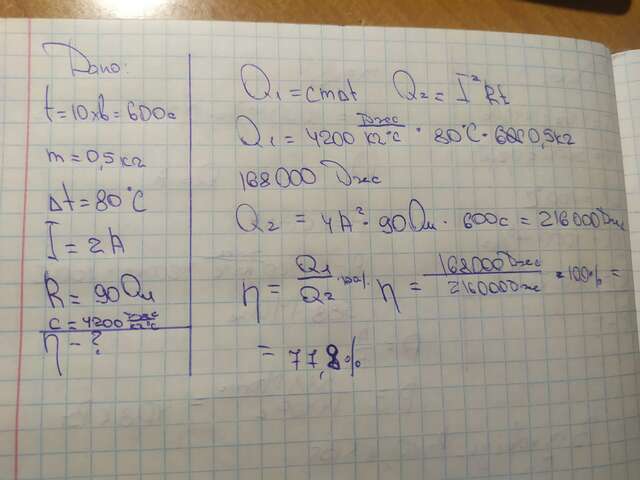 Дано:
t=10хв=600с
m=0,5кг
Δt=80°C
I=2A
R=90Ом
c=4200 Дж/кг°C
η-?
Q₁=cmΔt Q₂=I²Rt
Q₁=4200 Дж/кг°C · 80°C · 0,5кг
168000 Дж
Q₂ = 4A² · 90Ом · 600с = 216000 Дж
η = Q₁/Q₂ · 100% η = 168000Дж/216000Дж · 100% =
= 77,8%